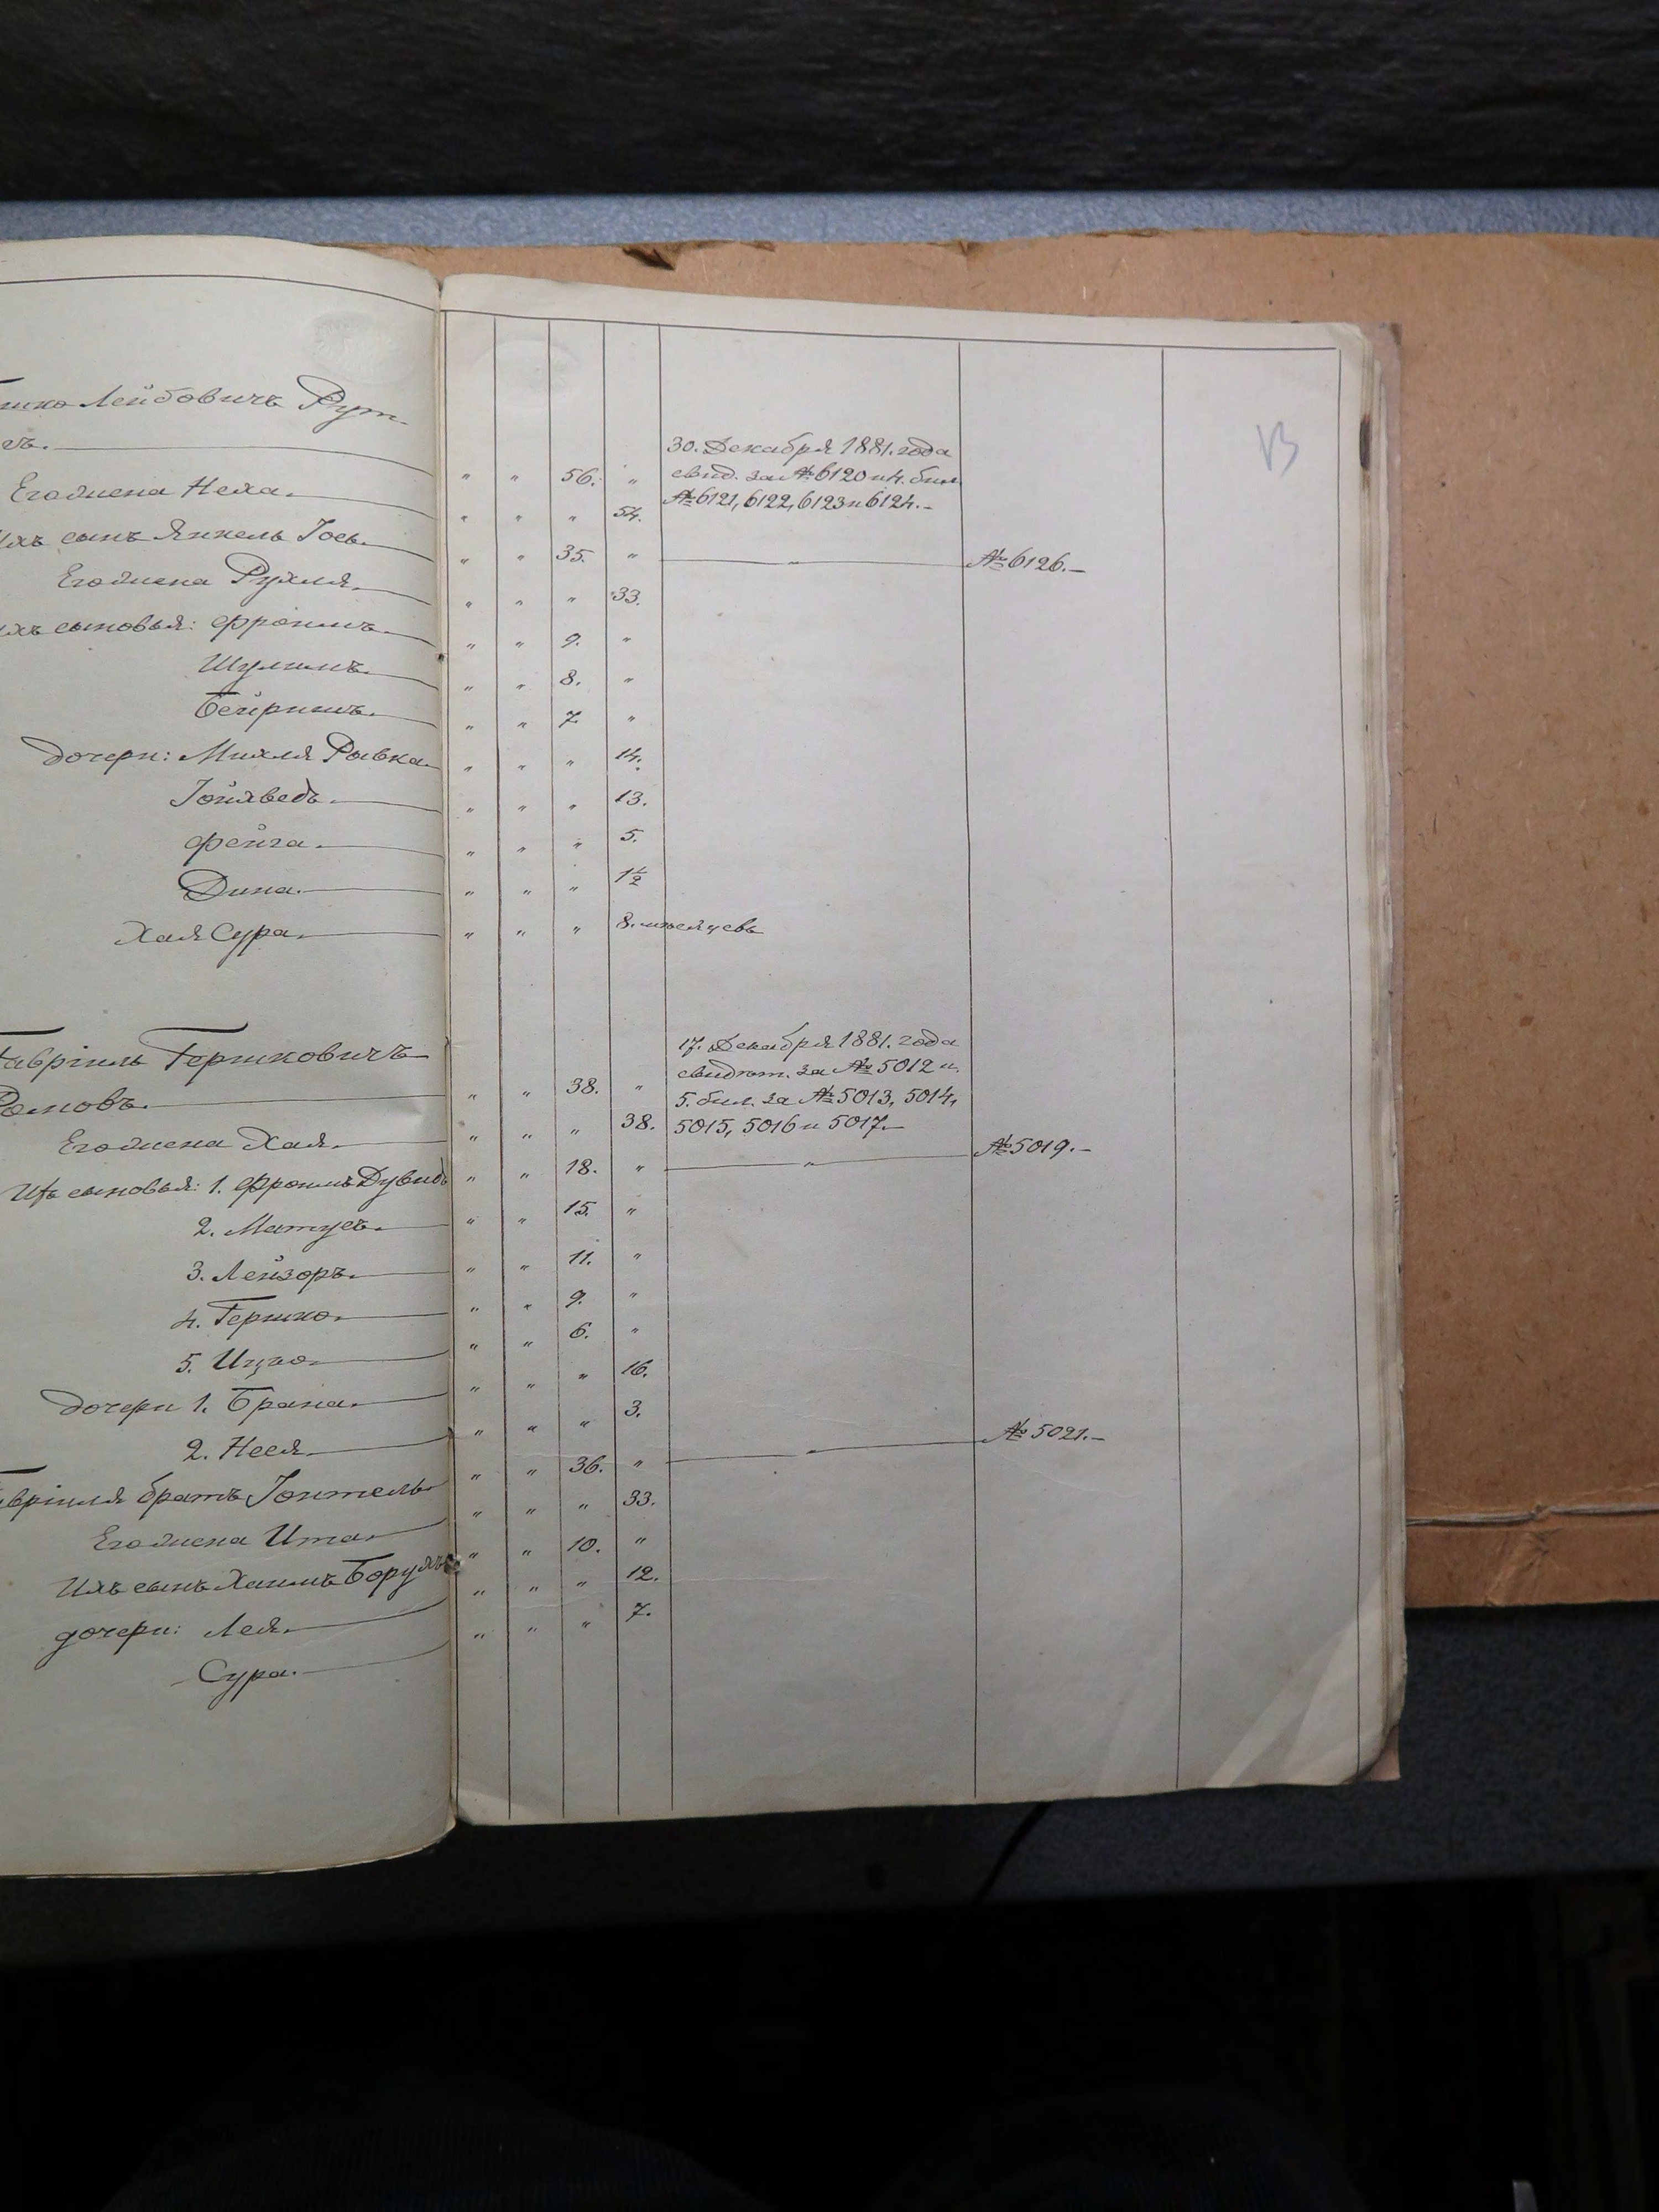 Лейбовичъ Рут-
Его жена Неха. " " 56. "
30. Декабря 1881. года
свид. за № 6120 и 4. бил.
№ 6121, 6122, 6123 и 6124.-
сынъ Янкель Іось. " " " 54.
Его жена Рухля. " " 35. " " № 6126.-
сыновья: Фроимъ. " " " 33.
Шулимъ. " " 9. "
Бейришъ. " " 8. "
" " 7. "
дочери: Михля Рывка. " " " 14.
Іойхведъ. " " " 13.
Фейга. " " " 5.
Дина. " " " 1½
Хая Сура. " " " 8. мѣсяцевъ
Гавріиль Гершковичъ
17. Декабря 1881. года
свидѣт. за № 5012 и.
5. бил. за № 5013, 5014,
5015, 5016 и 5017.-
" " 38. "
Его жена Хая. " " " 38.
Ихъ сыновья: 1. Фроимъ Дувидъ " " 18. " " № 5019.-
2. Матусъ. " " 15. "
3. Лейзоръ. " " 11. "
4. Гершко. " " 9. "
5. Ицко. " " 6. "
дочери 1. Брана. " " " 16.
2. Неся. " " " 3.
братъ Іойтель " " 36. " " № 5021.-
Его жена Ита. " " " 33.
Ихъ сынъ Хаимъ Борухъ " " 10. "
дочери: Лея. " " " 12.
Сура. " " " 7.
13